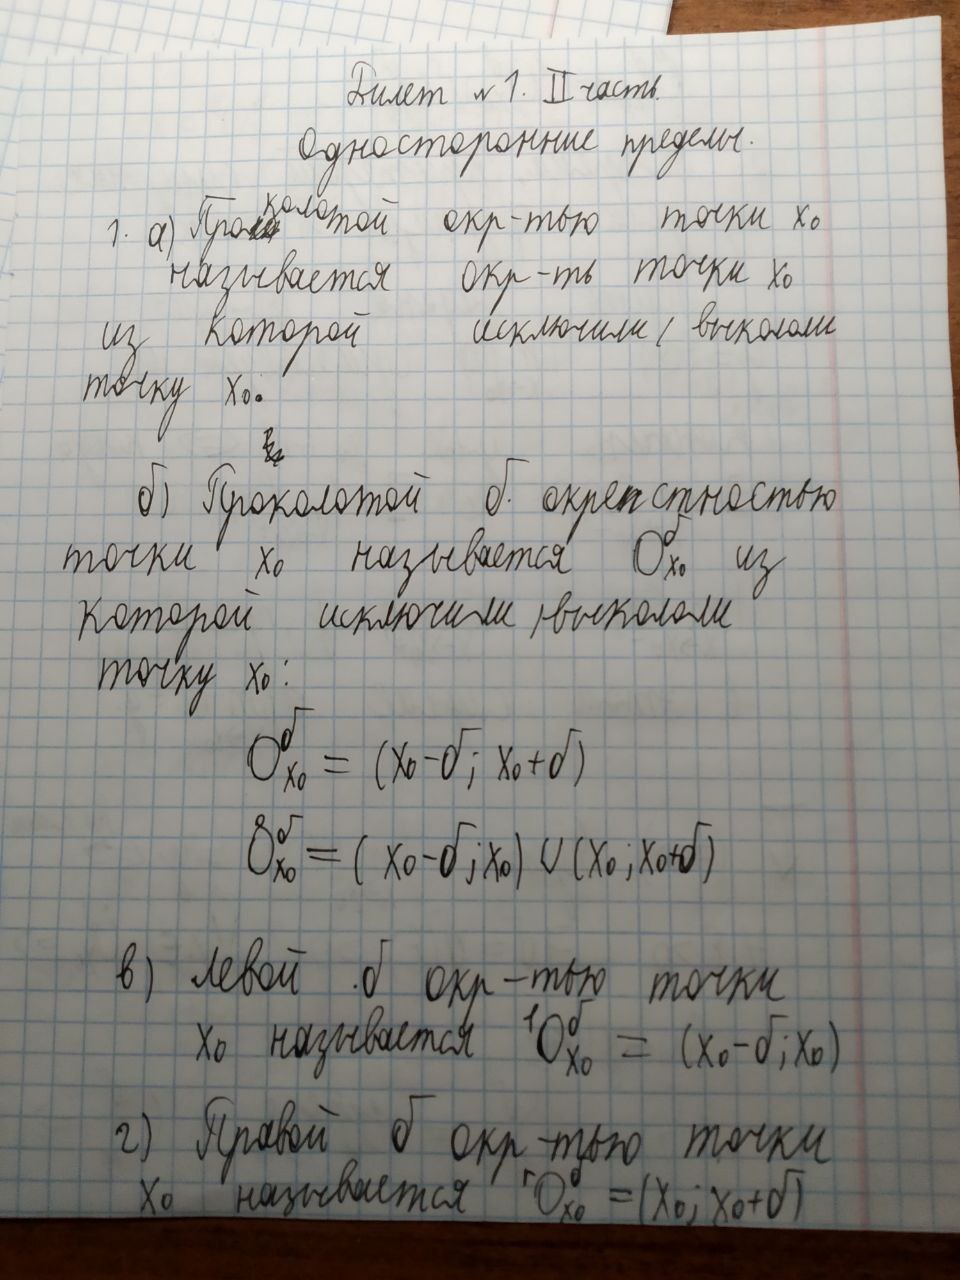 Билет №1. II часть.
Односторонние пределы.
1. а) Проколотой окр-тью точки x₀
называется окр-ть точки x₀
из которой исключили/выкололи
точку x₀.
б) Проколотой б. окрепстностью
точки x₀ называется O^б_x₀ из
которой исключили/выкололи
точку x₀:
O^б_x₀ = (x₀-б; x₀+б)
O̊^б_x₀ = (x₀-б; x₀) ∪ (x₀; x₀+б)
в) Левой б окр-тью точки
x₀ называется ¹O^б_x₀ = (x₀-б; x₀)
г) Правой б окр-тью точки
x₀ называется ʳO^б_x₀ = (x₀; x₀+б)